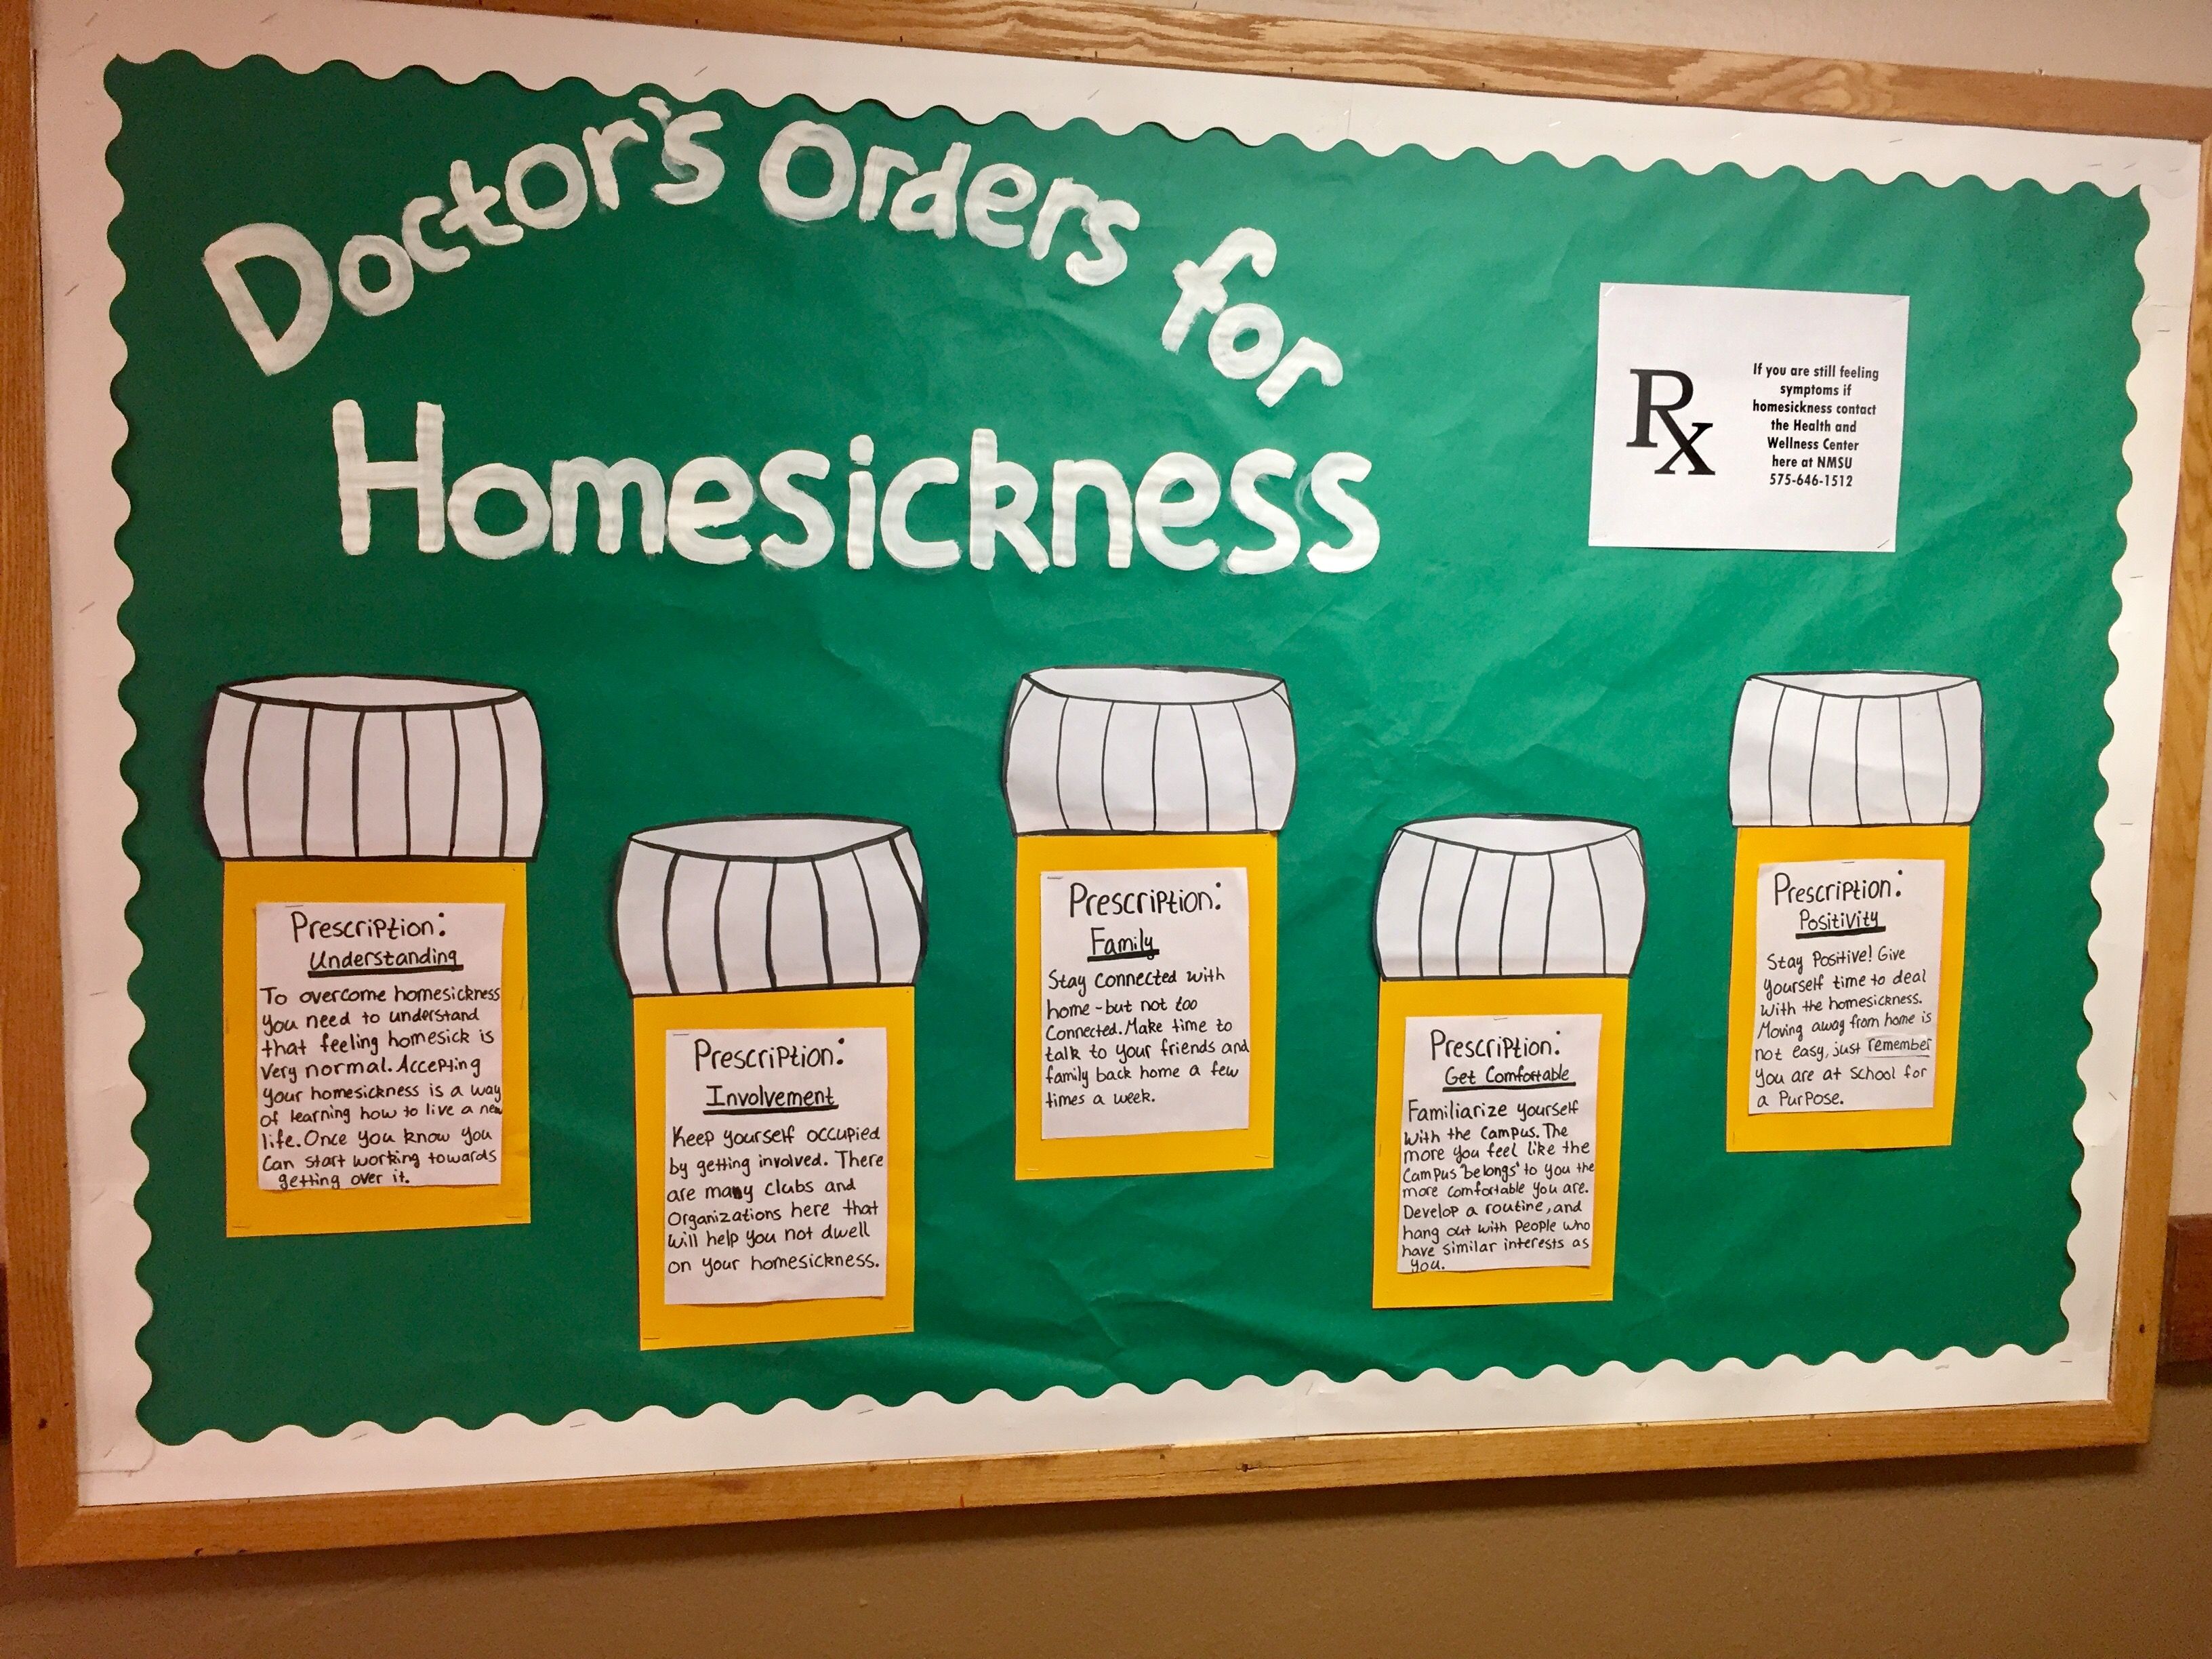 Doctor's Orders for
Homesickness
Rx
If you are still feeling
symptoms if
homesickness contact
the Health and
Wellness Center
here at NMSU
575-646-1512
Prescription:
Understanding
To overcome homesickness
you need to understand
that feeling homesick is
very normal. Accepting
your homesickness is a way
of learning how to live a new
life. Once you know you
can start working towards
getting over it.
Prescription:
Involvement
Keep yourself occupied
by getting involved. There
are many clubs and
Organizations here that
will help you not dwell
on your homesickness.
Prescription:
Family
Stay connected with
home - but not too
connected. Make time to
talk to your friends and
family back home a few
times a week.
Prescription:
Get Comfortable
Familiarize yourself
with the campus. The
more you feel like the
campus "belongs" to you the
more comfortable you are.
Develop a routine, and
hang out with people who
have similar interests as
you.
Prescription:
Positivity
Stay Positive! Give
yourself time to deal
with the homesickness.
Moving away from home is
not easy, just remember
you are at school for
a purpose.